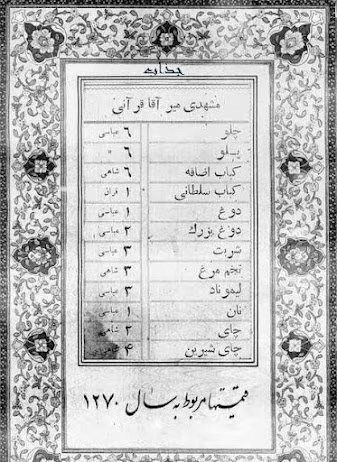 مشهدی میر آقا قرآنی
چلو ۶ عباسی
پلو ۶ "
کباب اضافه ۶ شاهی
کباب سلطانی ۱ قران
دوغ ۱ عباسی
دوغ بزرك ۲ عباسی
شربت ۳ عباسی
تخم مرغ ۳ شاهی
لیموناد ۳ عباسی
نان ۱ عباسی
چای ۲ شاهی
چای شیرین ۴
قیمتها مربوط به سال ۱۲۷۰